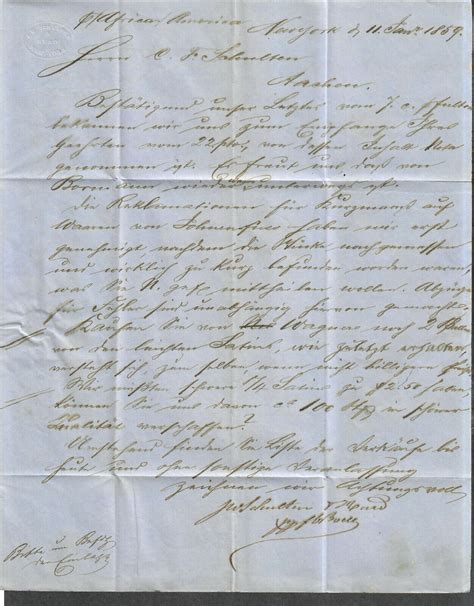 p/ Africa, America
Newyork d 11 Janr 1859.
Herrn C. F. Schulten
Aachen.
Bestätigend unser Letztes vom 7. c.
bekennen wir uns zum Empfange Ihres
Geehrten vom 22. pto, von dessen Inhalt Nota
genommen ist. Es freut uns daß von
Bormann wieder unterwegs ist.
Die Reklamationen für Kurzmaas auf
Waaren von haben wir erst
genehmigt nachdem die Stücke nachgemessen
und wirklich zu kurz befunden worden waren
was Sie H. gefl. mittheilen wollen. Abzüge
für Fehler sind unabhängig hiervon gemacht.
Kaufen Sie von Wagner noch 2
von den leichten Satins, wie zuletzt erhalten,
versteht sich, zu selben wenn nicht billigern
Wir möchten schwere 1/4 Satins zu haben,
können Sie uns davon ca 100 in schöner
Qualität verschaffen?
Umstehend finden Sie Liste der Verkäufe bis
heute und ohne sonstige Veranlassung
zeichnen wir Achtungsvoll
Schulten &
Bitte um Besitz
der Einlage